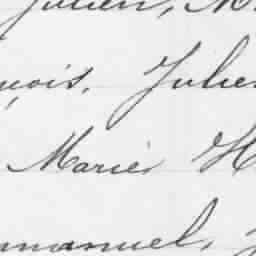 Julien, M
çois, Julie
Marie, H
manuel,